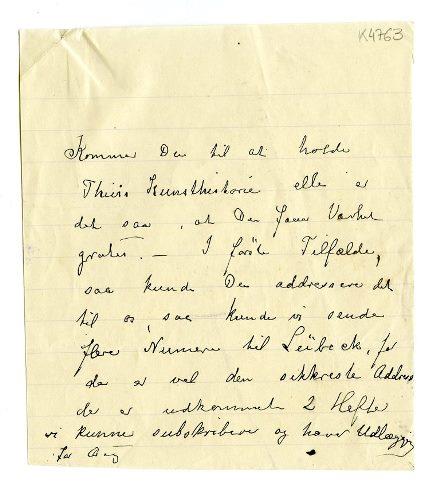 K4763
Komme De til at holde
Thiis Kunsthistorie eller er
det saa, at De faar Værket
gratis. — I første Tilfælde,
saa kunde De addressere det
til os, saa kunde vi sende
flere Numere til Lübeck, for
de er vel den sikkreste Address
der er udkommet 2 Hefter
vi kunne subskribere og have Udlægg
for